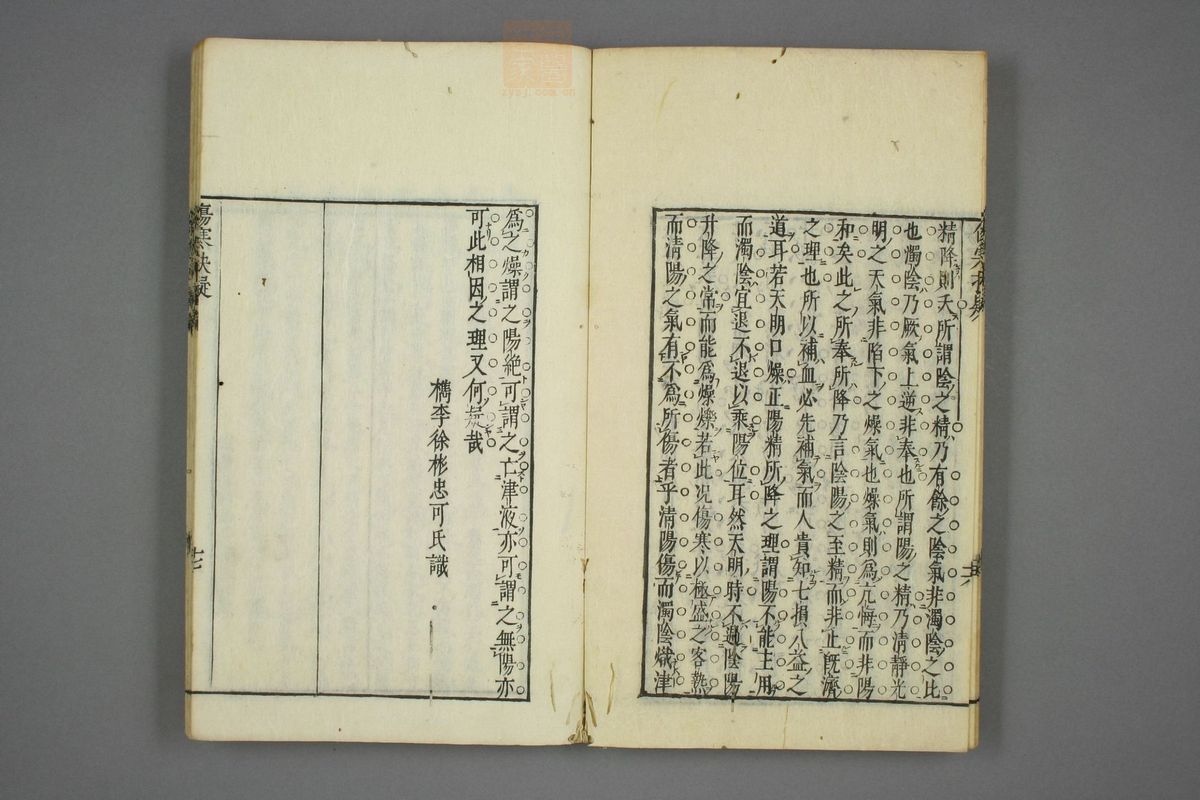 精降則夭所謂陰之精乃有餘之陰氣非濁陰之比
也濁陰乃厥氣上逆非奉也所謂陽之精乃清靜光
明之天氣非陷下之燥氣也燥氣則為亢悔而非陽
和矣此之所奉所降乃言陰陽之至精而非止旣濟
之理也所以補血必先補氣而人貴知七損八益之
道耳若天朗口燥正陽精所降之理謂陽不能主用
而濁陰宜退不退以乘陽位耳然天明時不過陰陽
升降之常而能為燥爍若此况傷寒以極盛之客熱
而清陽之氣有不為所傷者乎清陽傷而濁陰熾津
為之燥謂之陽絶可謂之亡津液亦可謂之無陽亦
可此相因之理又何疑哉
檇李徐彬忠可氏識
傷寒抉疑
十七
zysj.com.cn